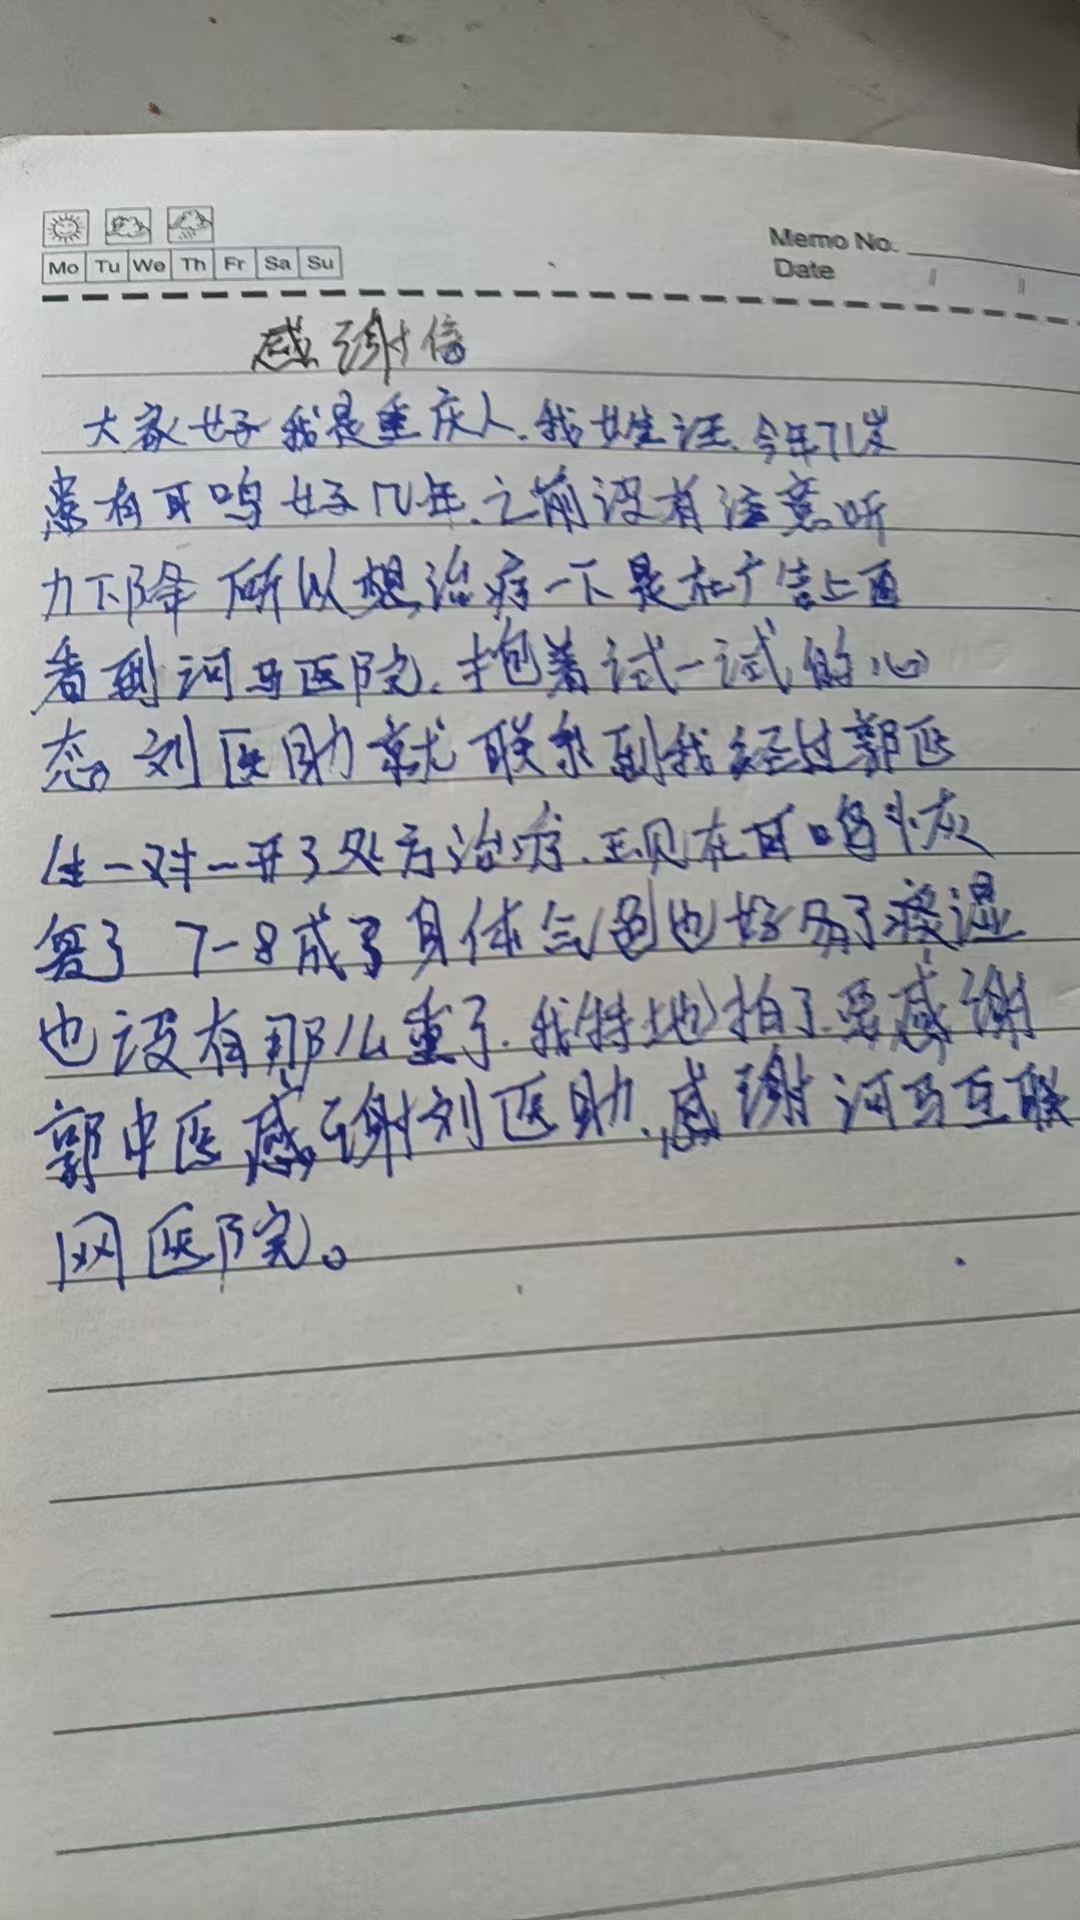 Mo Tu We Th Fr Sa Su
Memo No.
Date
感谢信
大家好我是重庆人.我姓汪.今年71岁
患有耳鸣好几年.之前没有注意听
力下降所以想治疗一下是在广告上面
看到河马医院.抱着试一试的心
态.刘医助就联系到我经过郭医
生一对一开了处方治疗.现在耳鸣恢
复了7-8成了身体气色也好多了痰湿
也没有那么重了.我特地拍了.要感谢
郭中医感谢刘医助.感谢河马互联
网医院。